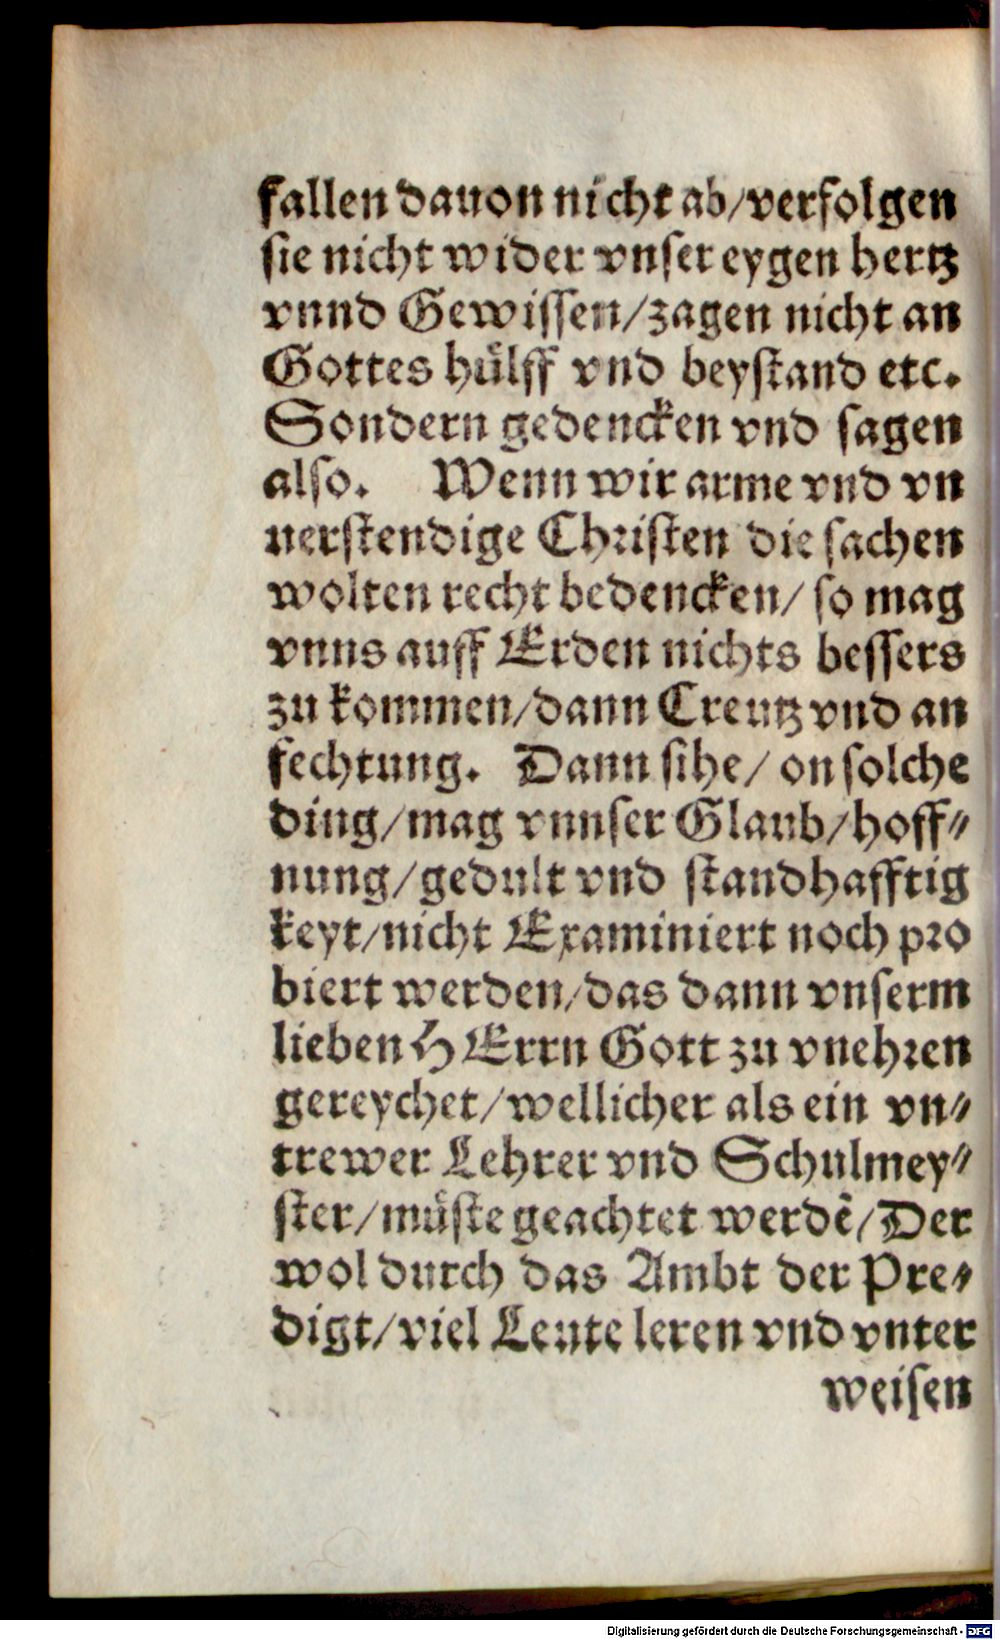 fallen dauon nicht ab/verfolgen
sie nicht wider vnser eygen hertz
vnnd Gewissen/zagen nicht an
Gottes hülff vnd beystand etc.
Sondern gedencken vnd sagen
also. Wenn wir arme vnd vn
uerstendige Christen die sachen
wolten recht bedencken/ so mag
vnns auff Erden nichts bessers
zu kommen/dann Creutz vnd an
fechtung. Dann sihe/ on solche
ding/mag vnnser Glaub/hoff⸗
nung/gedult vnd standhafftig
keyt/nicht Examiniert noch pro
biert werden/das dann vnserm
lieben HErrn Gott zu vnehren
gereychet/wellicher als ein vn⸗
trewer Lehrer vnd Schulmey⸗
ster/müste geachtet werdē/Der
wol durch das Ambt der Pre⸗
digt/viel Leute leren vnd vnter
weisen
Digitalisierung gefördert durch die Deutsche Forschungsgemeinschaft - DFG